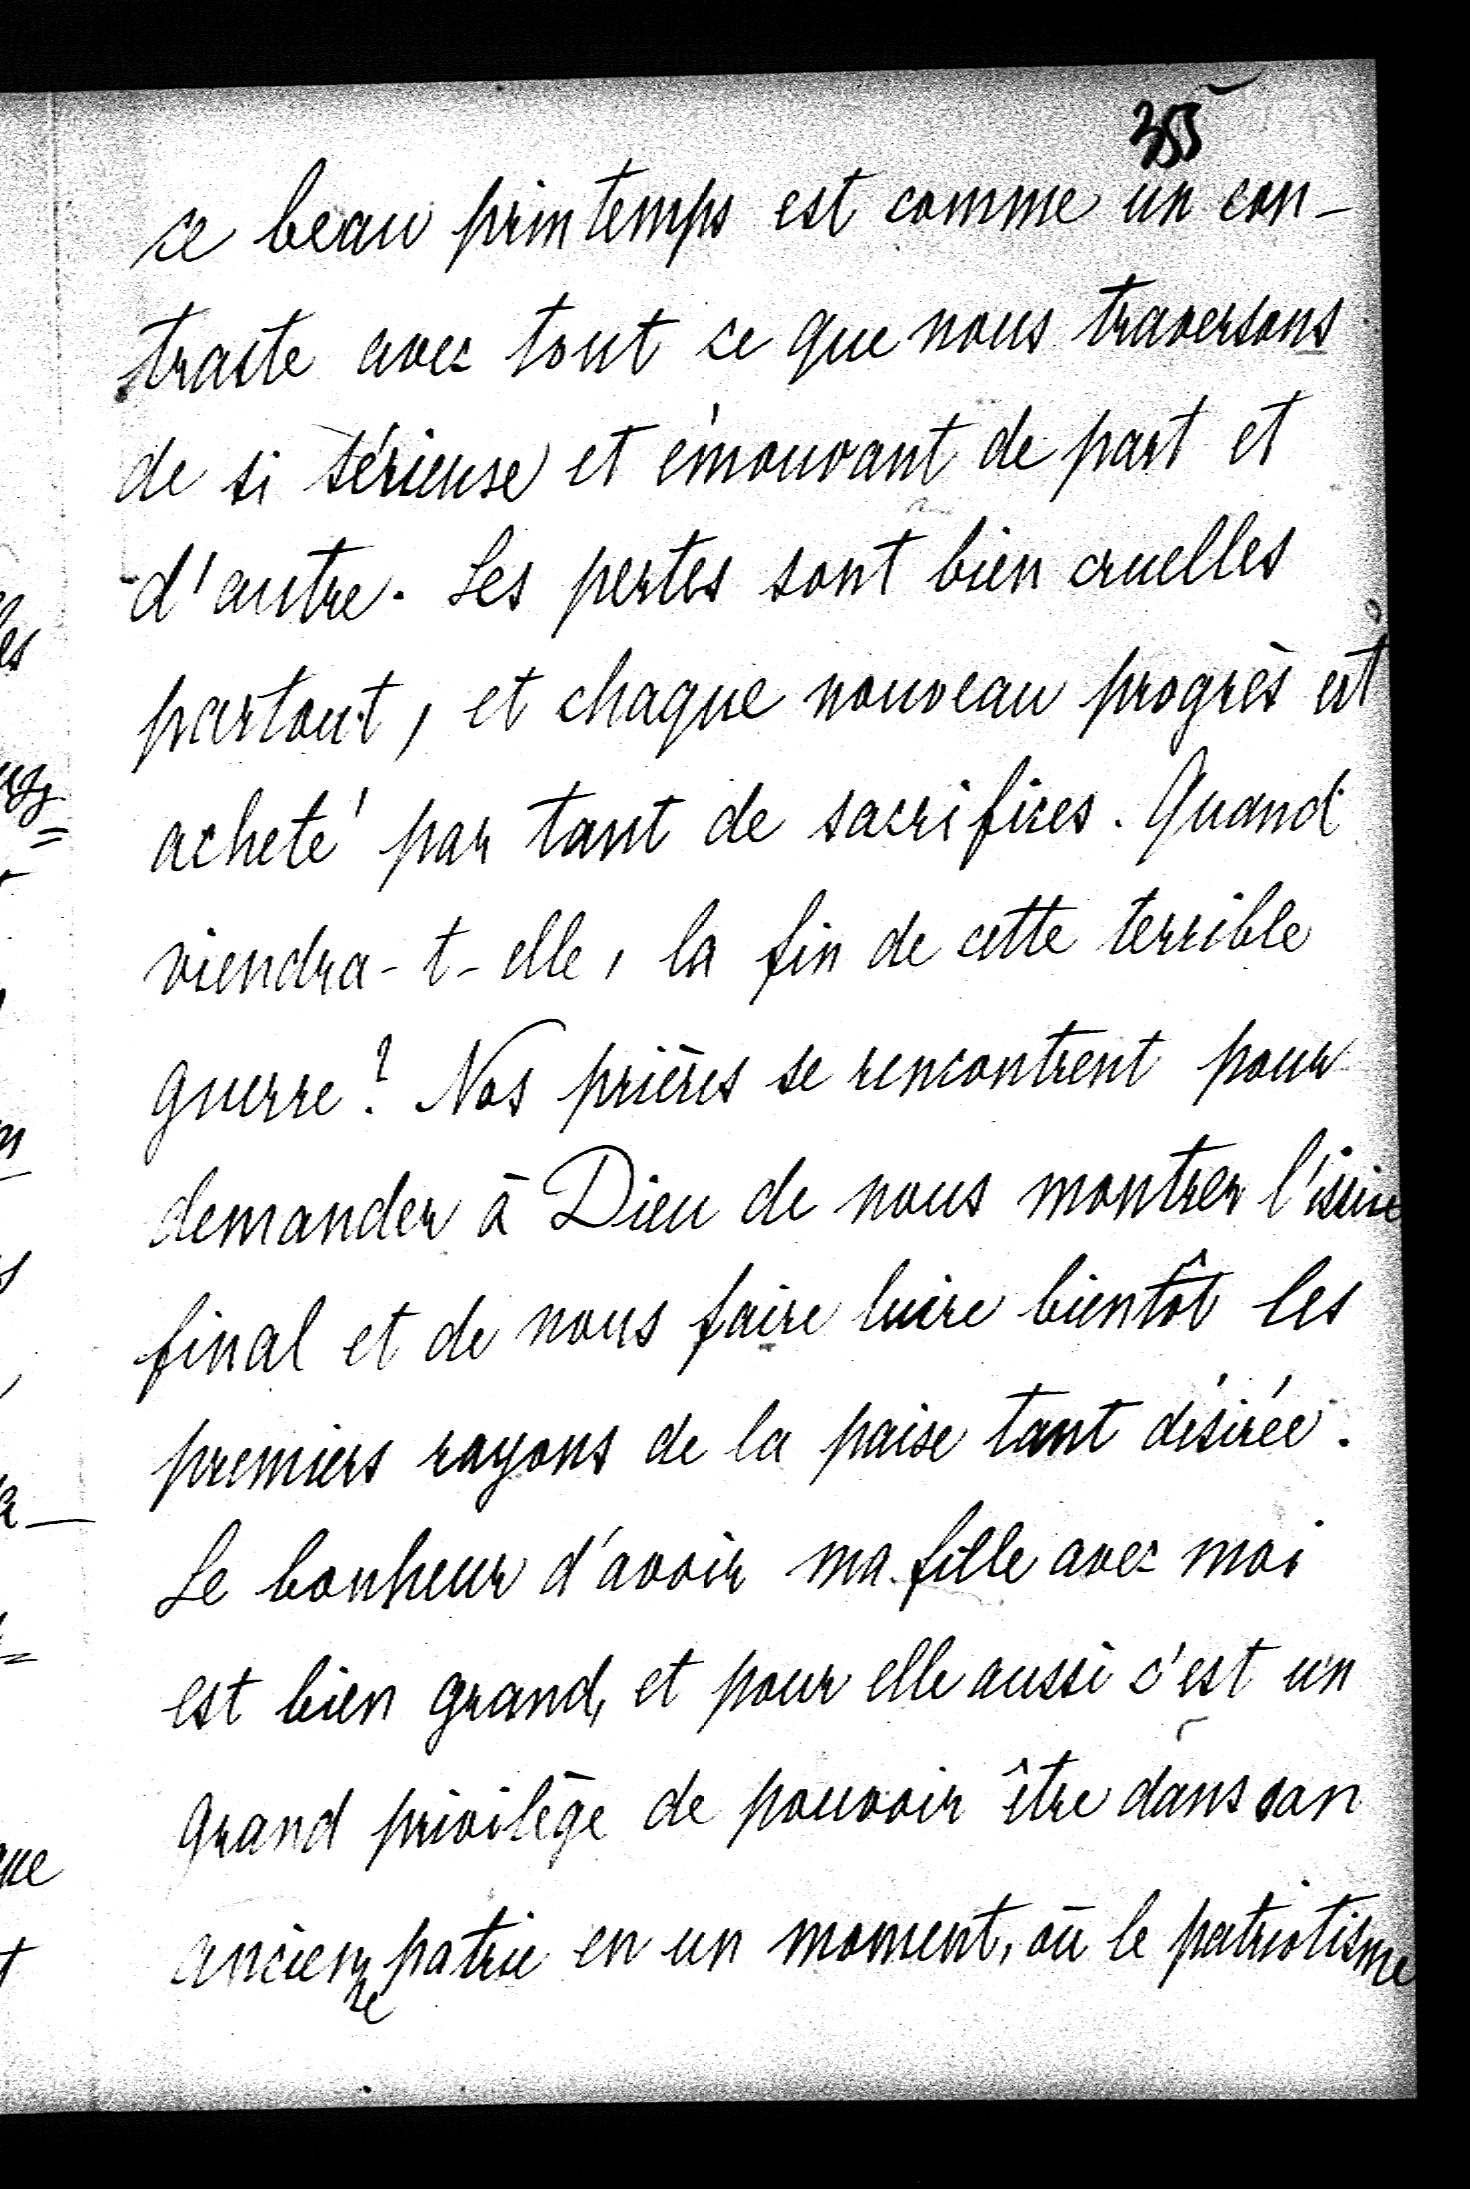 355
ce beau printemps est comme un con-
traste avec tout ce que nous traversons
de si sérieuse et émouvant de part et
d'autre. Les pertes sont bien cruelles
partout, et chaque nouveau progrès est
acheté par tant de sacrifices. Quand
viendra-t-elle, la fin de cette terrible
guerre? Nos prières se rencontrent pour
demander à Dieu de nous montrer
final et de nous faire luire bientôt les
premiers rayons de la paise tant désirée.
Le bonheur d'avoir ma fille avec moi
est bien grand, et pour elle aussi c'est un
grand privilège de pouvoir être dans son
ancienne patrie en un moment, où le patriotisme